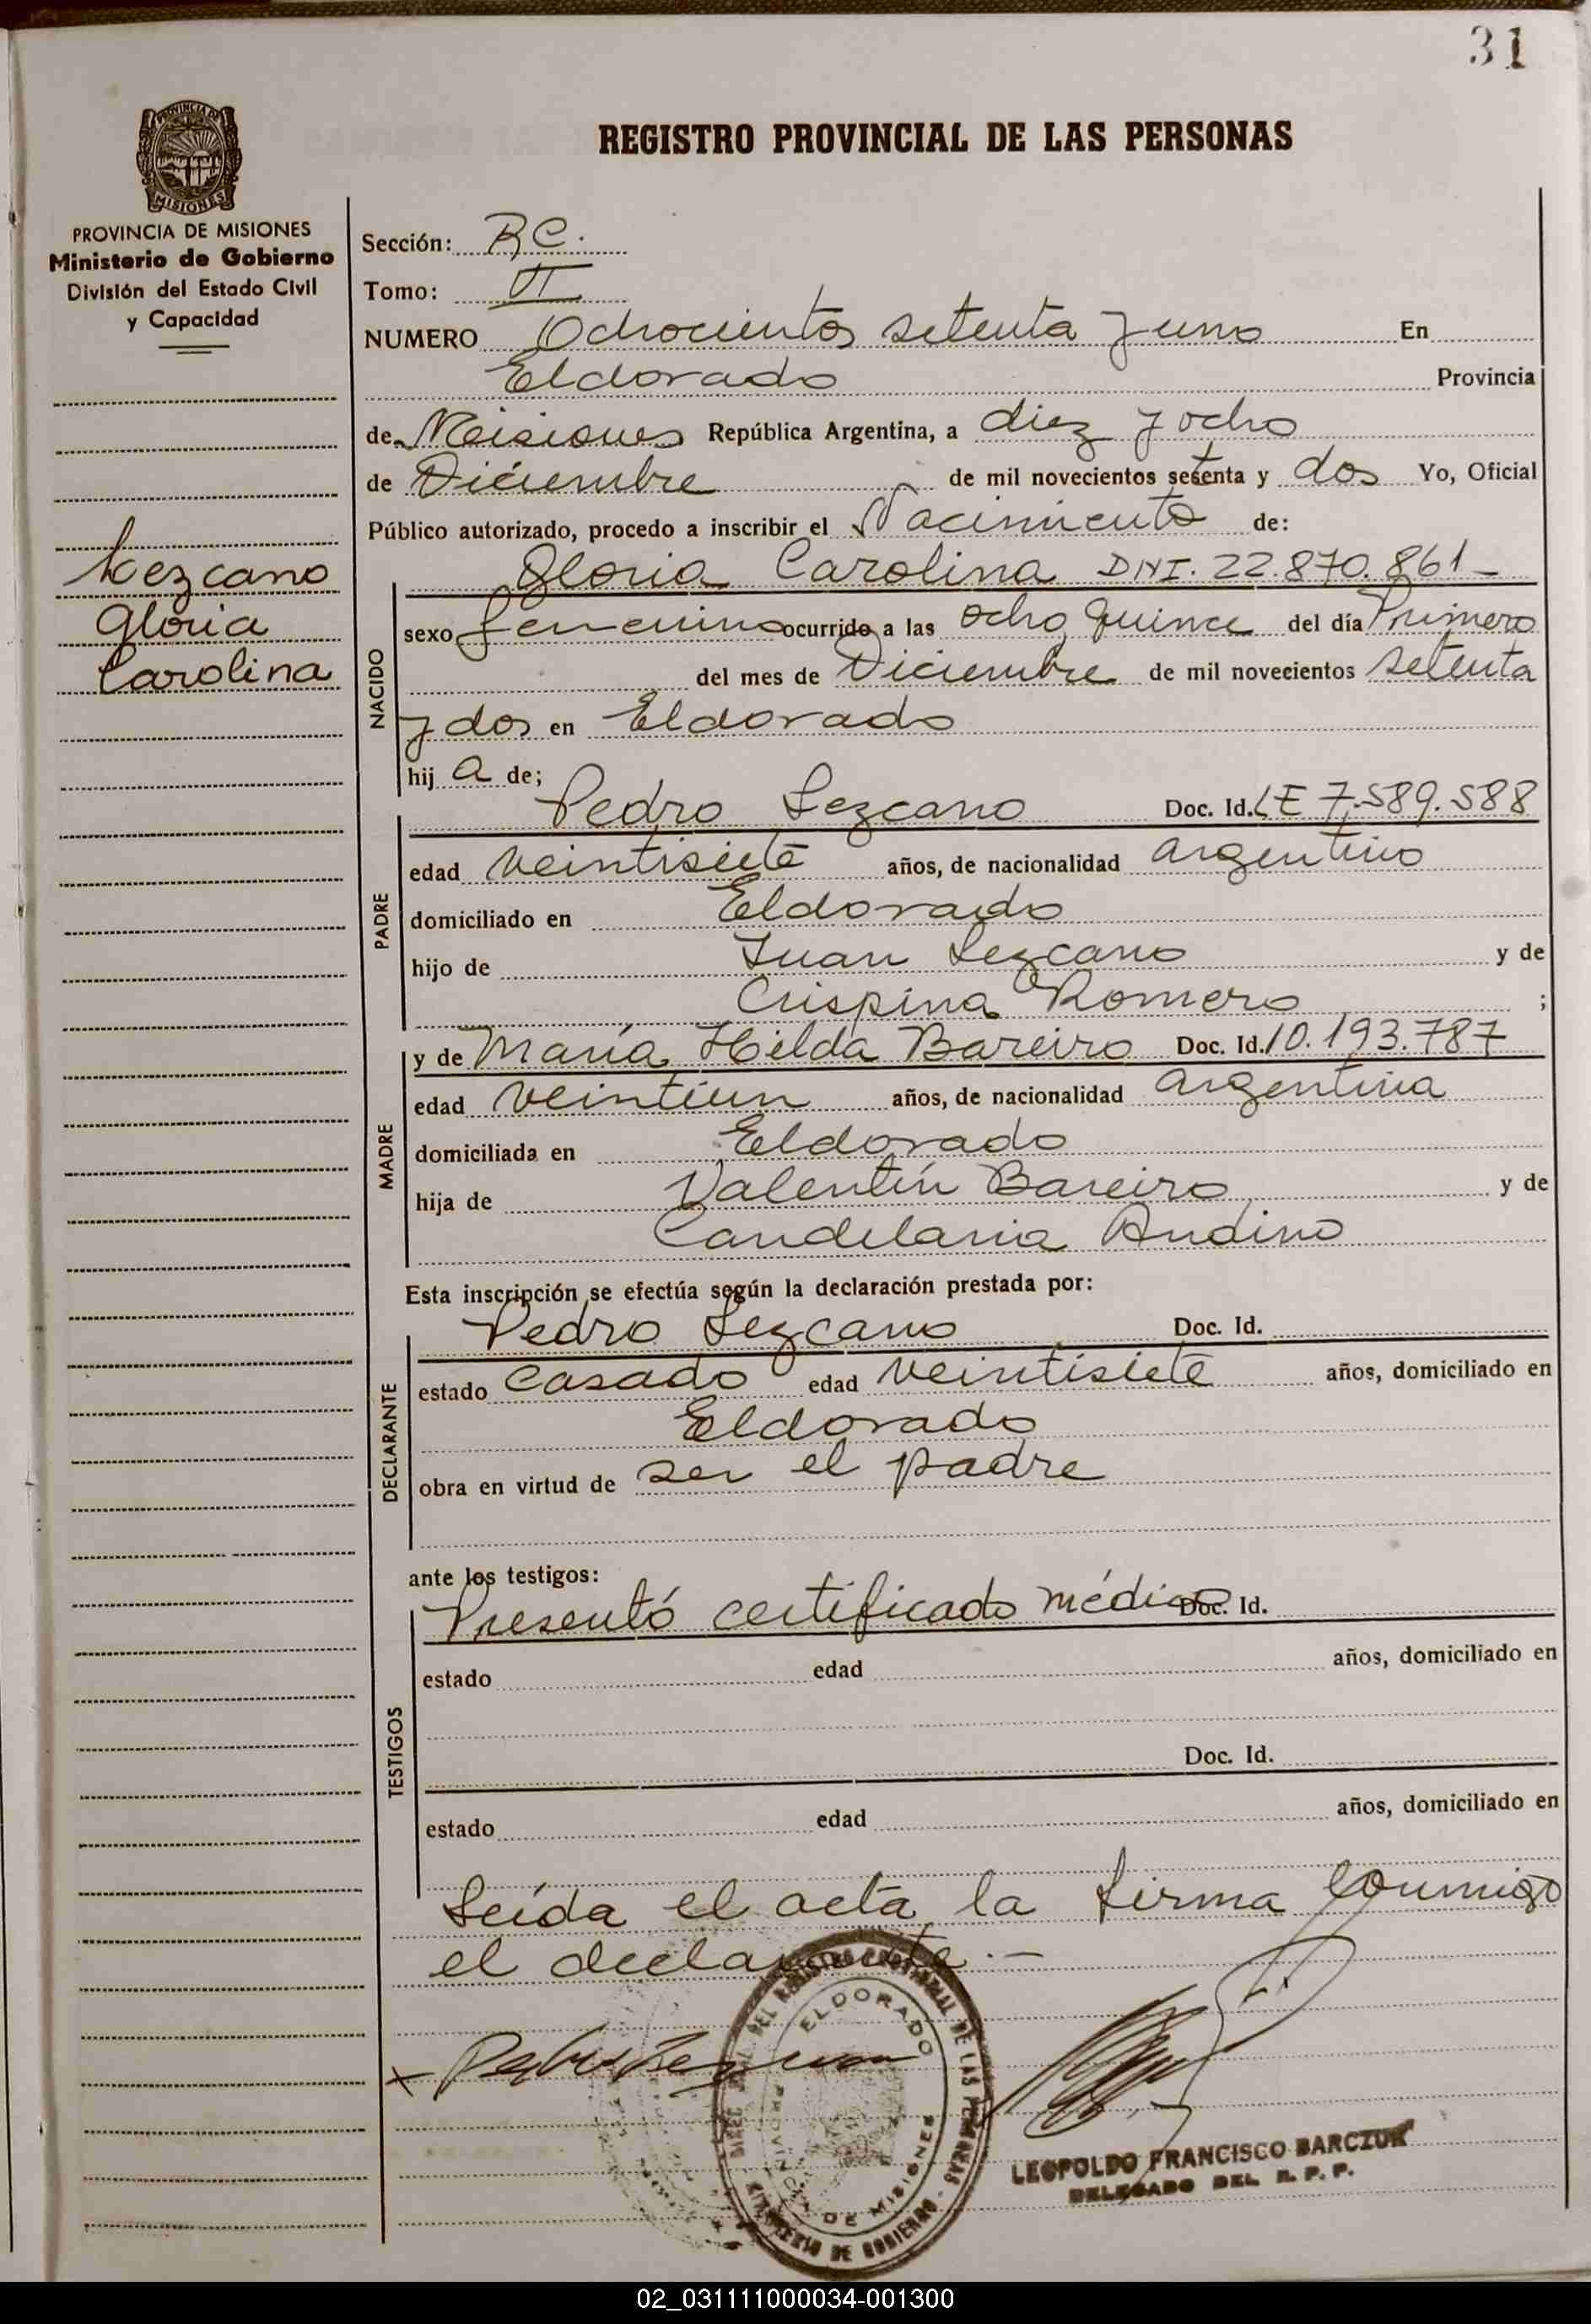 31
PROVINCIA DE
MISIONES
REGISTRO PROVINCIAL DE LAS PERSONAS
PROVINCIA DE MISIONES
Ministerio de Gobierno
División del Estado Civil
y Capacidad
Lezcano
Gloria
Carolina
Sección: RC.
Tomo: VI
NUMERO Ochocientos setenta y uno En
Eldorado Provincia
de Misiones República Argentina, a diez y ocho
de Diciembre de mil novecientos setenta y dos Yo, Oficial
Público autorizado, procedo a inscribir el Nacimiento de:
NACIDO
Gloria Carolina DNI. 22.870.861-
sexo femenino ocurrido a las ocho quince del día Primero
del mes de Diciembre de mil novecientos setenta
y dos en Eldorado
hij a de;
PADRE
Pedro Lezcano Doc. Id. LE 7.589.588
edad veintisiete años, de nacionalidad argentino
domiciliado en Eldorado
hijo de Juan Lezcano y de
Crispina Romero ;
MADRE
y de María Hilda Bareiro Doc. Id. 10.193.787
edad veintiun años, de nacionalidad argentina
domiciliada en Eldorado
hija de Valentín Bareiro y de
Candelaria Andino
Esta inscripción se efectúa según la declaración prestada por:
DECLARANTE
Pedro Lezcano Doc. Id.
estado Casado edad veintisiete años, domiciliado en
Eldorado
obra en virtud de ser el padre
ante los testigos:
TESTIGOS
Presentó certificado médico Doc. Id.
estado edad años, domiciliado en
Doc. Id.
estado edad años, domiciliado en
Leída el acta la firma conmigo
el declarante.-
DEL REGISTRO PROVINCIAL DE LAS PERSONAS
ELDORADO
PROVINCIA DE MISIONES
MINISTERIO DE GOBIERNO
LEOPOLDO FRANCISCO BARCZUK
DELEGADO DEL R. P. P.
02_031111000034-001300